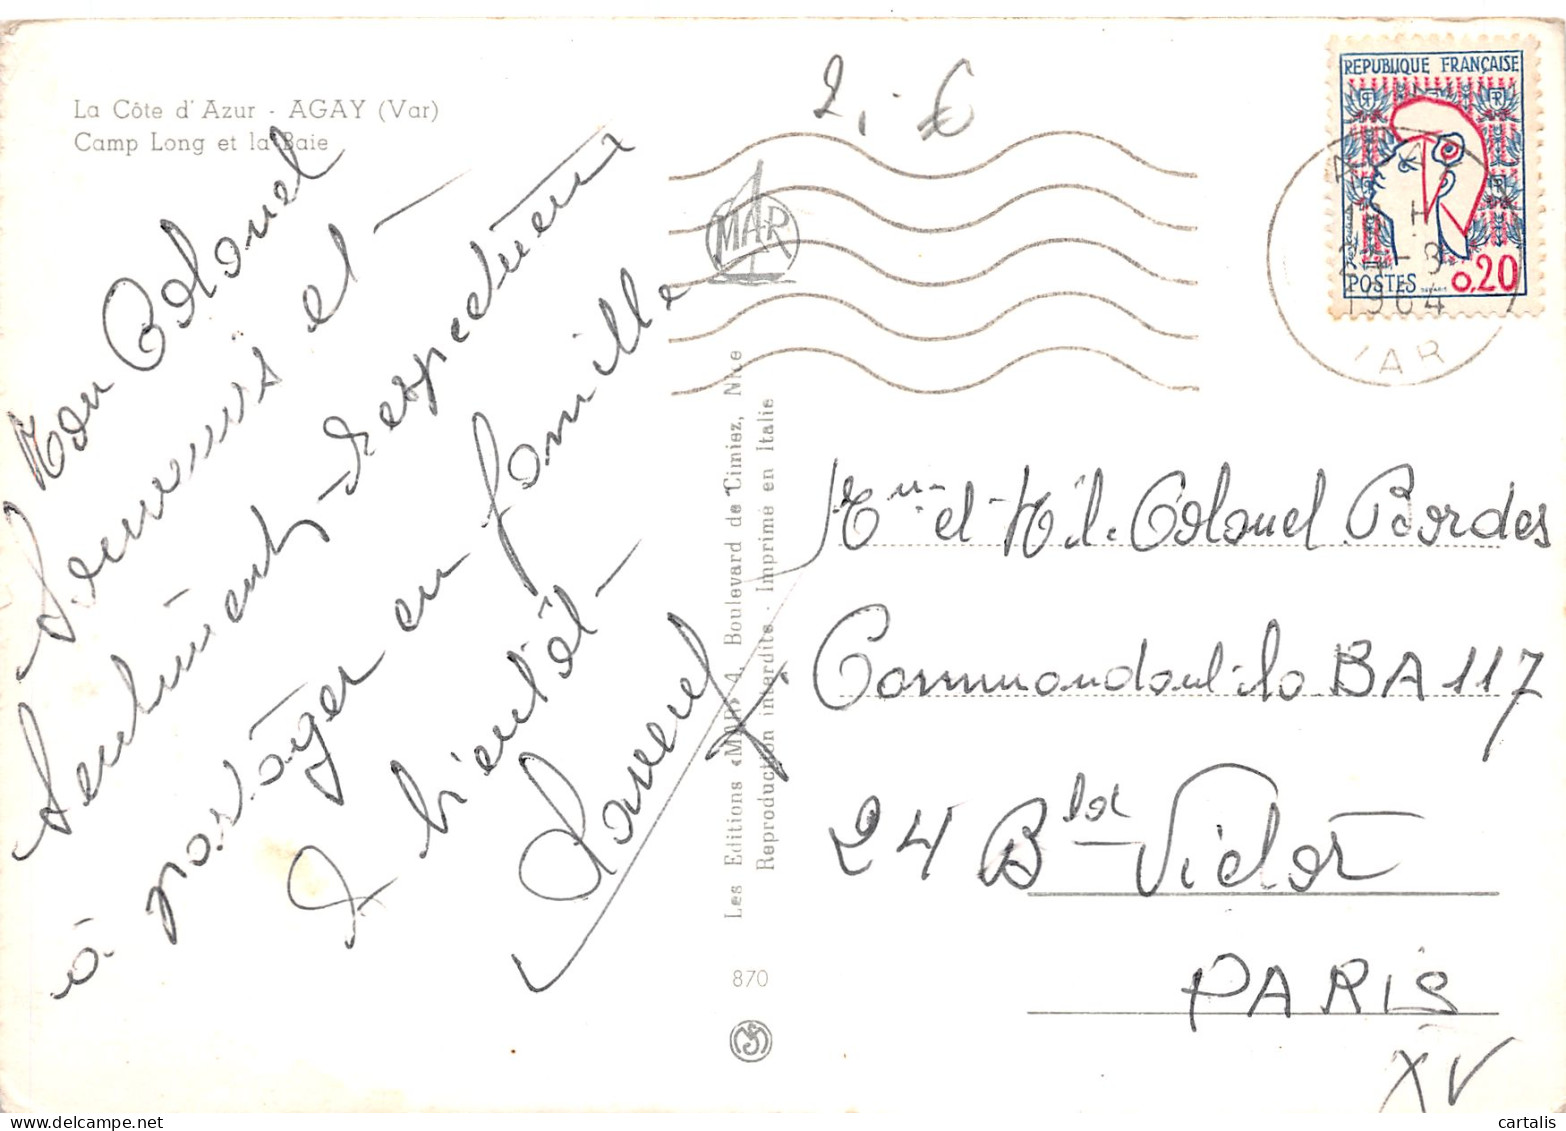 La Côte d'Azur - AGAY (Var)
Camp Long et la Baie
2,- €
REPUBLIQUE FRANÇAISE
POSTES 0,20
18 H
1964
VAR
Mon Colonel
Souvenirs et -
sentiments respectueux
à partager en famille
A bientôt -
MAR
Les Editions «MAR» 4, Boulevard de Cimiez, Nice
Reproduction interdite - Imprimé en Italie
870
Mme et Mr le Colonel Bordes
Commandant la BA 117
24 Bld Victor
PARIS
XV
cartalis